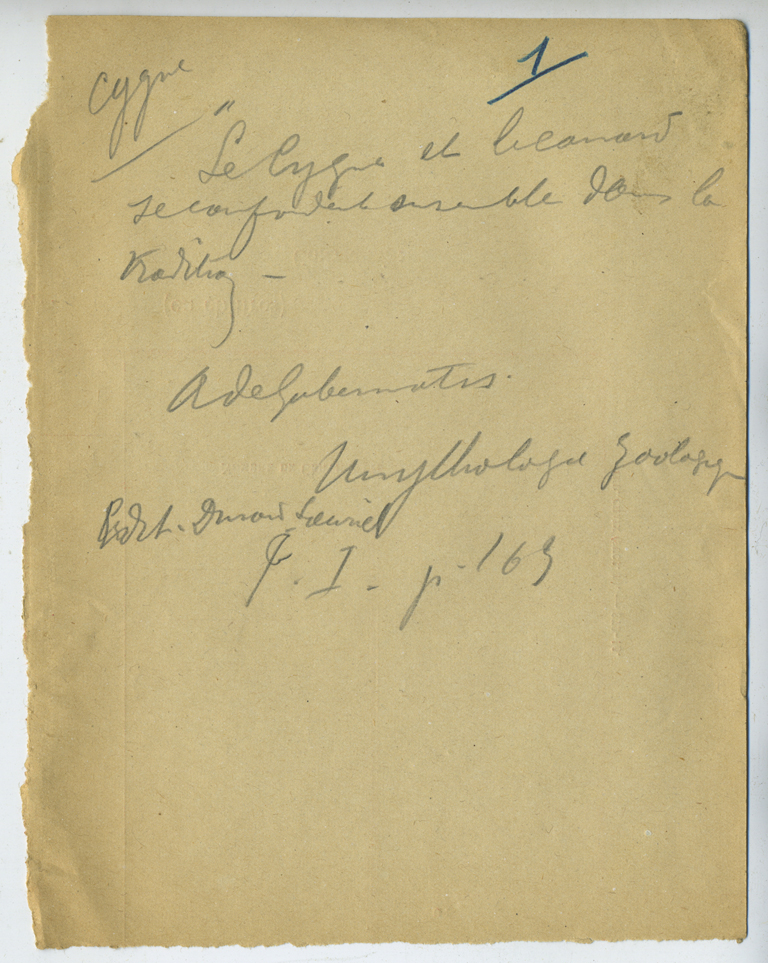 1
Cygne
"Le Cygne et le canard
se confondent ensemble dans la
tradition —
A de Gubernatis.
Mythologie Zoologique
Durand
T. I - p. 163